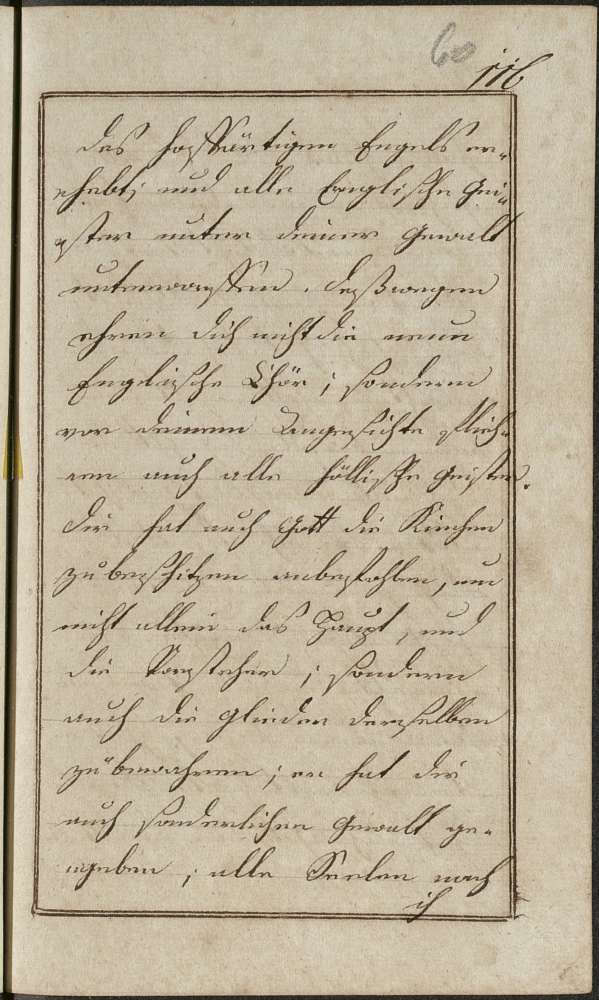 60
116
des hoffärtigen Engels er-
hebt, und alle Englische Gei-
ster unter deiner Gewalt
unterworffen. deßwegen
ehren dich nicht die neun
Englische Chör; sondern
vor deinem Angesichte flieh-
en auch alle höllische Geister.
dir hat auch Gott die Kirchen
zu beschitzen anbefohlen, um
nicht allein das Haupt, und
die Vorsteher; sondern
auch die Glieder derselben
zu bewahren; er hat dir
auch sonderlichen Gewalt ge-
geben, alle Seelen nach
ih